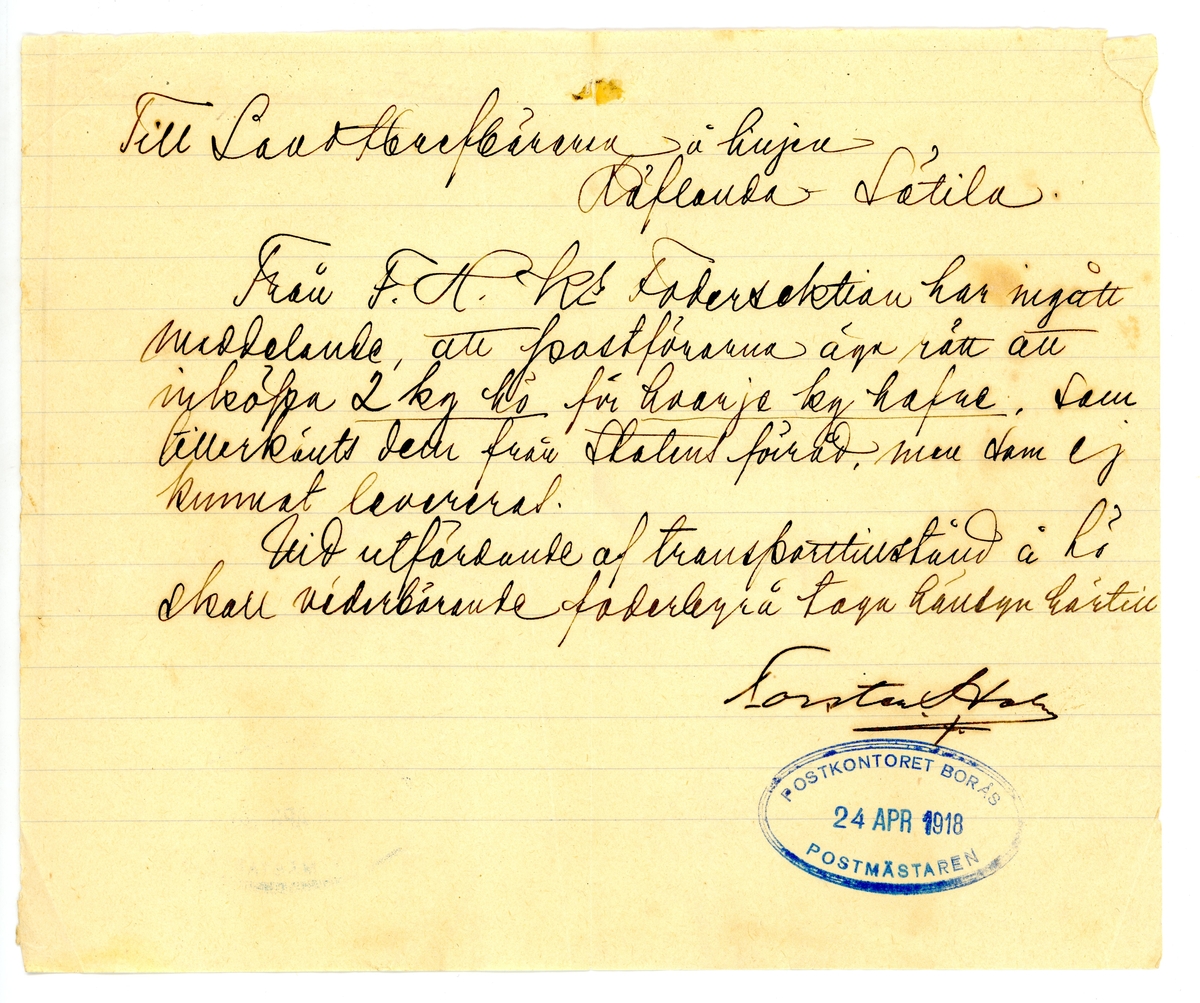 Till Landtbrefbäraren å linjen
Räflanda - Sätila.
Från F. H. K:s Fodersektion har ingått
meddelande, att postförarna äga rätt att
inköpa 2 kg hö för hvarje kg hafre, som
tillerkänts dem från Statens förråd, men som ej
kunnat levereras.
Vid utfärdande af transporttillstånd å hö
skall vederbörande foderbyrå taga hänsyn härtill
Torsten Holm
POSTKONTORET BORÅS
24 APR 1918
POSTMÄSTAREN